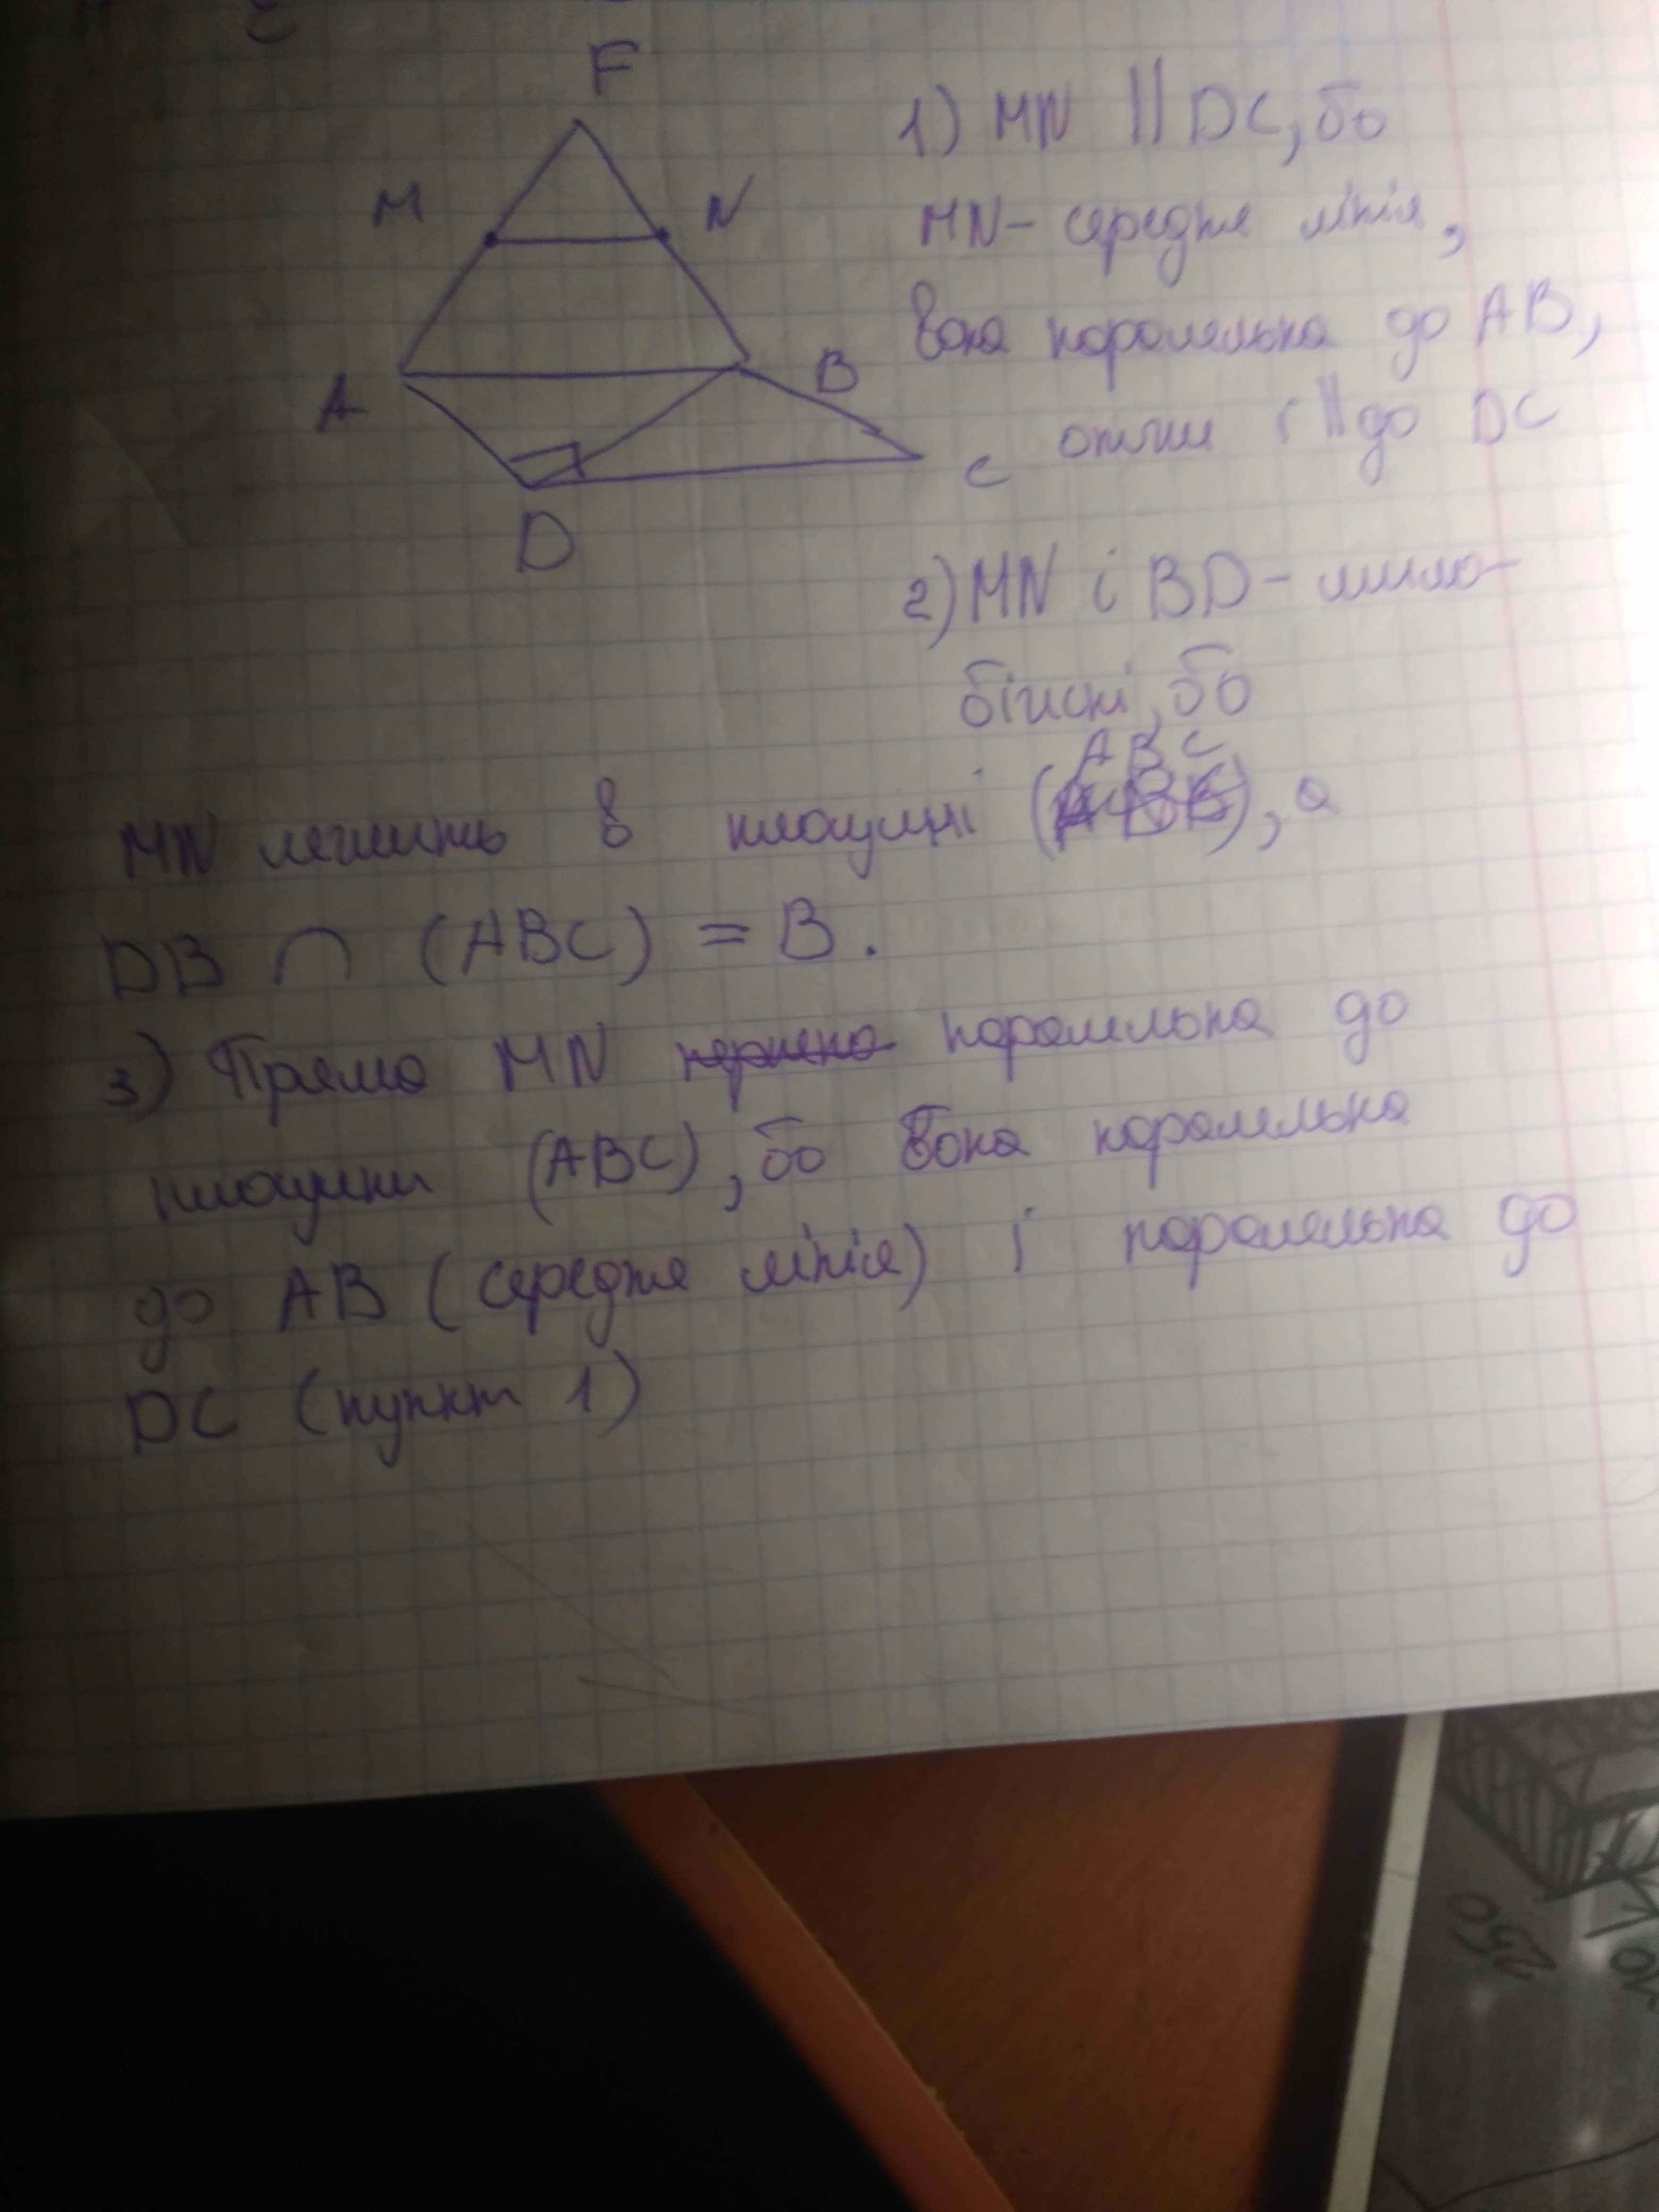 F
M
N
A
B
C
D
1) MN || DC, бо
MN - середня лінія,
вона паралельна до AB,
отже і || до DC
2) MN і BD - мимо-
біжні, бо
ABC
MN лежить в площині ( ), а
DB ∩ (ABC) = B.
3) Пряма MN паралельна до
площини (ABC), бо вона паралельна
до AB (середня лінія) і паралельна до
DC (пункт 1)
250